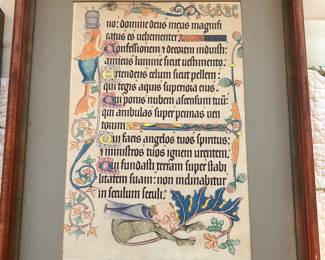 no: domine deus meus magnifi
catus es vehementer:
Confessionem & decorem induisti:
amictus lumine sicut vestimento:
Extendens celum sicut pellem:
qui tegis aquis superiora eius.
Qui ponis nubem ascensum tuū:
qui ambulas super pennas ven
torum
Qui facis angelos tuos spiritus:
& ministros tuos ignem urentem:
Qui fundasti terram super stabi
litatem suam: non inclinabitur
in seculum seculi.